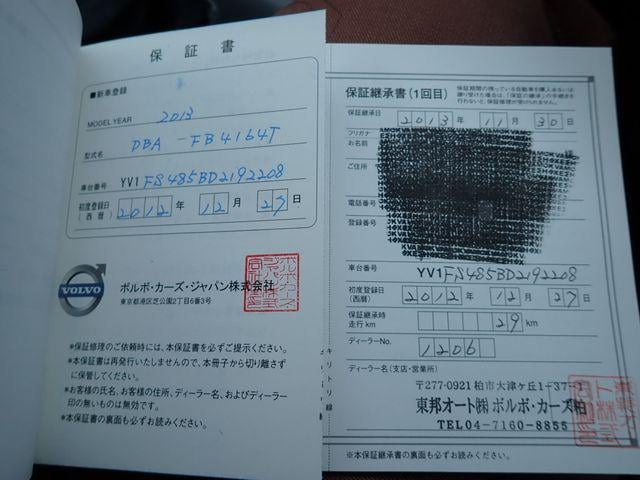 保証書
■新車登録
MODEL YEAR 2013
型式名 DBA-FB4164T
車台番号 YV1FS485BD2192208
初度登録日(西暦) 2012年 12月 27日
VOLVO
ボルボ・カーズ・ジャパン株式会社
東京都港区芝公園2丁目6番3号
*保証修理のご依頼時には、本保証書を必ずご提示ください。
*本保証書は再発行いたしませんので、本冊子から切り離さず
に保管してください。
*お客様の氏名、お客様の住所、ディーラー名、およびディーラー
印の無いものは無効です。
*本保証書の裏面も必ずお読みください。
キリトリ線
保証継承書(1回目)
保証期間の残っている自動車を購入あるいは
譲り受けた場合は、「保証の継承」の手続きを
行わないと、保証修理が受けられません。
保証継承日 2013年 11月 30日
フリガナ
お名前
様
ご住所
電話番号
登録番号
車台番号 YV1FS485BD2192208
初度登録日(西暦) 2012年 12月 27日
保証継承時走行km 29 km
ディーラーNo. 1206
ディーラー名(支店・営業所)
〒277-0921 柏市大津ヶ丘1-37-1
東邦オート㈱ ボルボ・カーズ柏
TEL04-7160-8855
*本保証書の裏面も必ずお読みください。